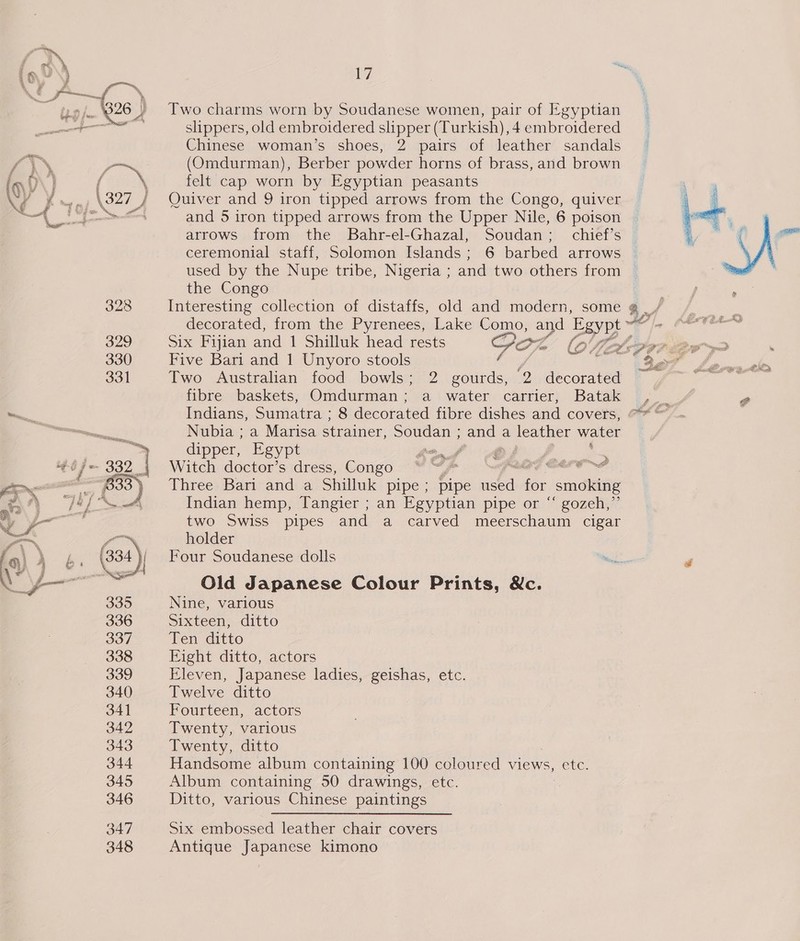 17
326 Two charms worn by Soudanese women, pair of Egyptian
slippers, old embroidered slipper (Turkish), 4 embroidered
Chinese woman's shoes, 2 pairs of leather sandals
(Omdurman), Berber powder horns of brass, and brown
felt cap worn by Egyptian peasants
327 Quiver and 9 iron tipped arrows from the Congo, quiver
and 5 iron tipped arrows from the Upper Nile, 6 poison
arrows from the Bahr-el-Ghazal, Soudan; chief's
ceremonial staff, Solomon Islands; 6 barbed arrows
used by the Nupe tribe, Nigeria; and two others from
the Congo
328 Interesting collection of distaffs, old and modern, some
decorated, from the Pyrenees, Lake Como, and Egypt
329 Six Fijian and 1 Shilluk head rests
330 Five Bari and 1 Unyoro stools
331 Two Australian food bowls; 2 gourds, 2 decorated
fibre baskets, Omdurman; a water carrier, Batak
Indians, Sumatra; 8 decorated fibre dishes and covers,
Nubia; a Marisa strainer, Soudan; and a leather water
dipper, Egypt
332 Witch doctor's dress, Congo
333 Three Bari and a Shilluk pipe; pipe used for smoking
Indian hemp, Tangier; an Egyptian pipe or "gozeh,"
two Swiss pipes and a carved meerschaum cigar
holder
334 Four Soudanese dolls
Old Japanese Colour Prints, &c.
335 Nine, various
336 Sixteen, ditto
337 Ten ditto
338 Eight ditto, actors
339 Eleven, Japanese ladies, geishas, etc.
340 Twelve ditto
341 Fourteen, actors
342 Twenty, various
343 Twenty, ditto
344 Handsome album containing 100 coloured views, etc.
345 Album containing 50 drawings, etc.
346 Ditto, various Chinese paintings
347 Six embossed leather chair covers
348 Antique Japanese kimono